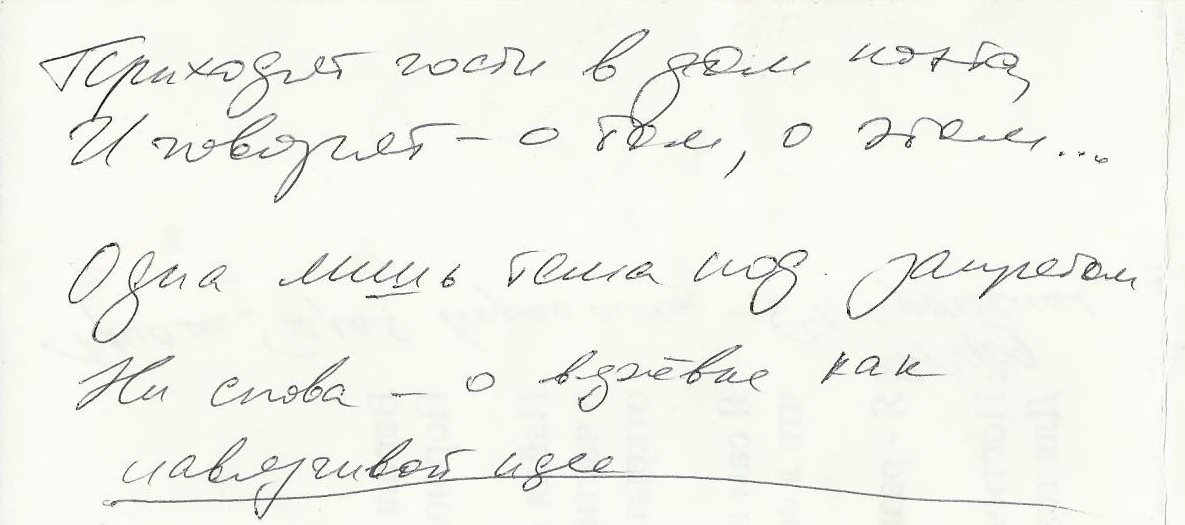 Приходят гости в дом поэта,
И говорят – о том, о этом...
Одна лишь тема под запретом
Ни слова – о как
навязчивой идее